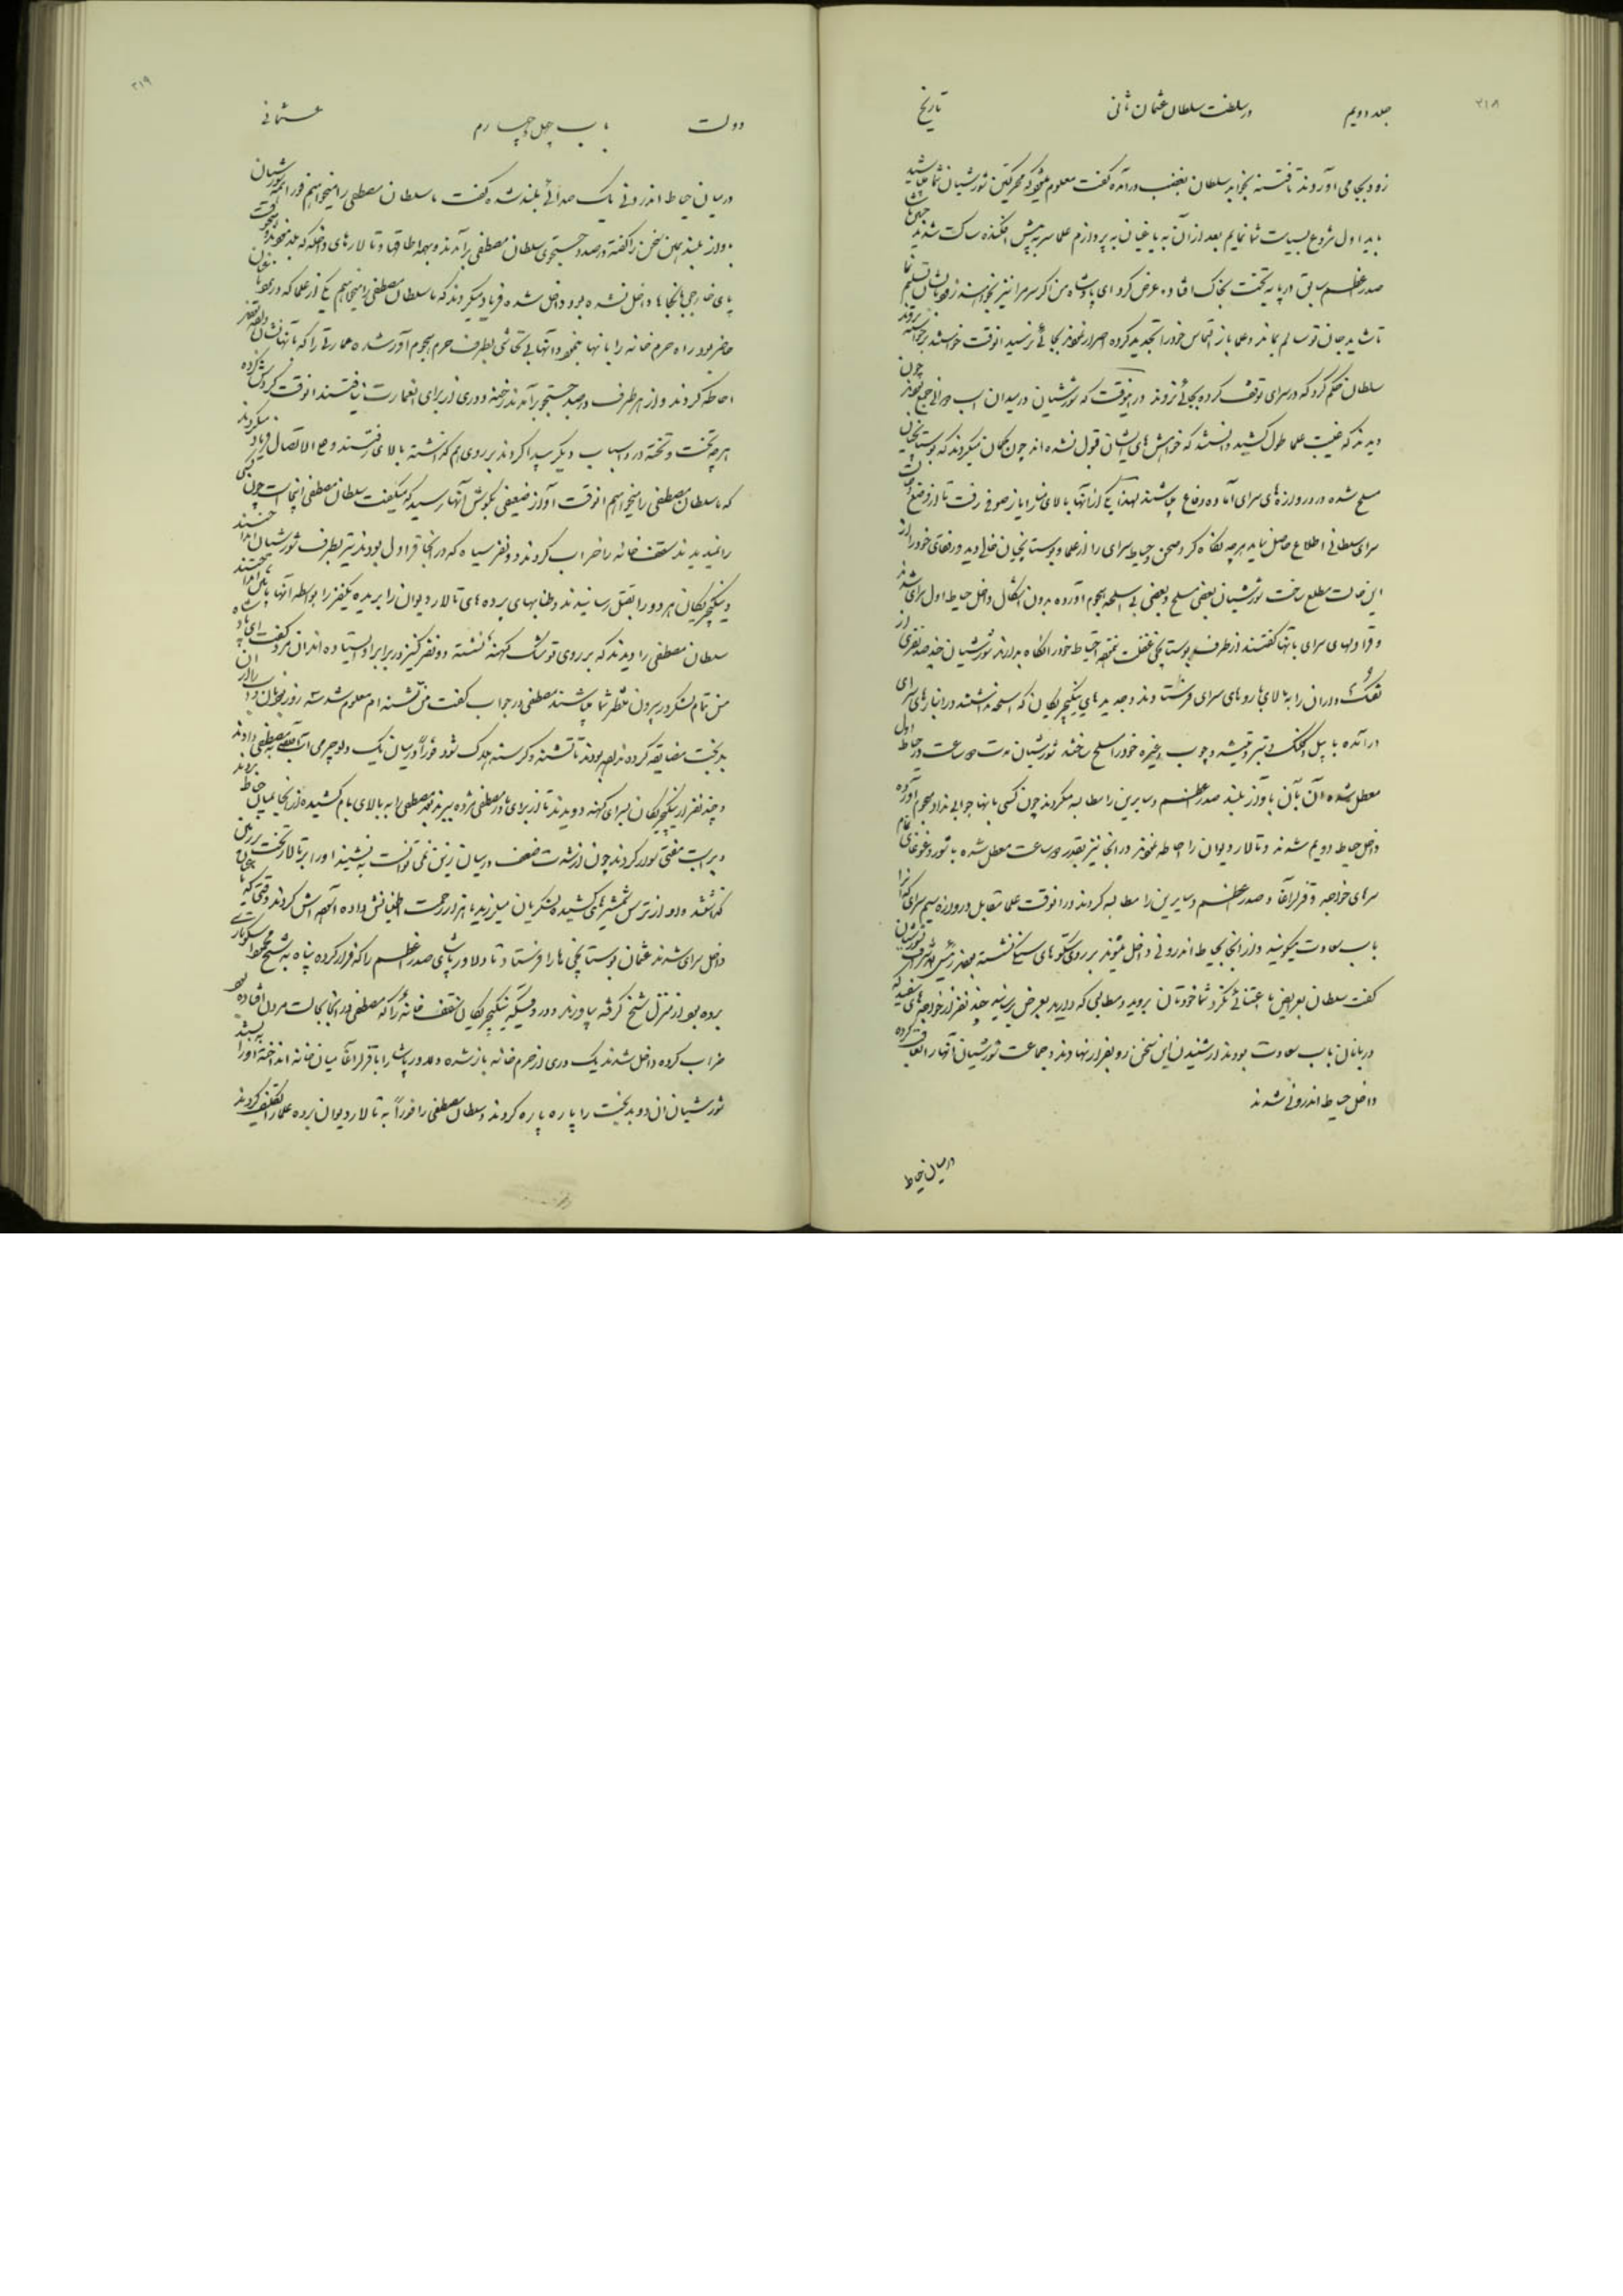 ۲۱۸
جلد دویم
در سلطنت سلطان عثمان ثانی
تاریخ
زود بجا می آوردند تا فتنه بخوابد سلطان بغضب درآمده گفت معلوم میشود که محرکین شورشیان شما میباشید
باید اول شروع بسیاست شما نمایم بعد از آن به یاغیان به پردازم علما سر به پیش افکنده ساکت شدند
صدر اعظم سابق در پایه تخت بخاک افتاد و عرض کرد ای پادشاه من اگر سر مرا نیز بخواهند تسلیم نما
تا شاید جان تو سالم بماند و علما باز التماس خود را تجدید کرده اصرار نمودند بجائی نرسید آنوقت خواستند بروند
سلطان حکم کرد که در سرای توقف کرده بجائی نروند در اینوقت که شورشیان در میدان اسب دوانی جمع بودند چون
دیدند که غیبت علما طول کشید دانستند که خواهش های ایشان قبول نشده اند چون گمان میکردند که بوستانچیان
مسلح شده در دروازه های سرای آماده دفاع میباشند لهذا یکی از آنها بالای منار ایاز صوفی رفت تا از وضع
سرای سلطانی اطلاع حاصل نماید هرچه نگاه کرد صحن و حیاط سرای را از علما و بوستانچیان خالی دید و رفقای خود را از
این حالت مطلع ساخت شورشیان بعضی مسلح و بعضی بی اسلحه هجوم آورده بدون اشکال داخل حیاط اول سرای شدند
و قراولهای سرای بآنها گفتند از طرف بوستانچی غفلت ننموده احتیاط خود را نگاه بدارند شورشیان چند صد نفری از
تفنگ داران را به بالای باروهای سرای فرستادند و جدیدهای ینگیچریکان که اسلحه نداشتند در انبارهای سرای
درآمده با بیل و کلنگ و تبر و تیشه و چوب و غیره خود را مسلح ساختند شورشیان مدت دو ساعت در حیاط اول
معطل شده آن بآن با آواز بلند صدر اعظم و سایرین را مطالبه میکردند چون کسی بآنها جوابی نداد هجوم آورده
داخل حیاط دویم شدند و تالار دیوان را احاطه نمودند در آنجا نیز بقدر دو ساعت معطل شده با شور و غوغای تمام
سرهای خواجه و قزلرآغا و صدر اعظم و سایرین را مطالبه کردند در آنوقت علما مقابل دروازه سیم سرای که آنرا
باب سعادت میگویند و از آنجا بحیاط اندرونی داخل میشوند بر روی سکوهای سنگی نشسته
گفت سلطان بعرایض ما اعتنائی نکرد شما خودتان بروید و مطالبی که دارید بعرض برسانید چند نفر از خواجه های سفید که
دربانان باب سعادت بودند از شنیدن این سخن رو بفرار نهادند و جماعت شورشیان آنها را تعاقب کرده
داخل حیاط اندرونی شدند
در میان حیاط
۲۱۹
دولت
باب چهل و چهارم
عثمانی
در میان حیاط اندرونی یک صدائی بلند شده گفت ما سلطان مصطفی را میخواهیم فوراً همه شورشیان
بآواز بلند همین سخن را گفته در صدد جستجوی سلطان مصطفی برآمدند و بهمه اطاقها و تالارهای داخله که
پای خارجی بآنجاها داخل نشده بود داخل شده فریاد میکردند که ما سلطان مصطفی را میخواهیم یکی از علما که در آنجا
حاضر بود راه حرم خانه را بآنها بنمود و آنها بی تحاشی بطرف حرم هجوم آور شده عمارتی را که بآنها نشان
احاطه کردند و از هر طرف در صدد جستجو برآمدند رخنه و دری از برای آنعمارت نیافتند آنوقت
هرچه تخت و تخته در و اسباب دیگر پیدا کردند بر روی هم گذاشته بالای رفتند و علی الاتصال فریاد میکردند
که ما سلطان مصطفی را میخواهیم آنوقت آواز ضعیفی بگوش آنها رسید که میگفت سلطان مصطفی اینجاست چون
را ندیدند سقف خانه را خراب کردند دو نفر سیاه که در آنجا قراول بودند تیر بطرف شورشیان انداختند
و ینگیچریکان هر دو را بقتل رسانیدند و طنابهای پرده های تالار دیوان را بریده یکنفر را بواسطه آنها پائین
سلطان مصطفی را دیدند که بر روی توشک کهنه نشسته و دو نفر کنیز در برابر او ایستاده اند آن مرد گفت ای پادشاه
من تمام لشکر در بیرون منتظر شما میباشند مصطفی در جواب گفت من تشنه ام معلوم شد سه روز بود
بدبخت مضایقه کرده بودند تا تشنه و گرسنه هلاک شود فوراً در میان یک دلوچرمی آب به مصطفی دادند
و چند نفر از ینگیچریکان بسرای کهنه دویدند تا از برای مادر مصطفی مژده ببرند بعد مصطفی را به بالای بام کشیده از آنجا بمیان حیاط بردند
و بر اسب مفتی سوار کردند چون از شدت ضعف در میان زین نمی توانست به نشیند او را بر تالار تخت
گذاشتند و او از ترس شمشیرهای کشیده لشکریان میلرزید با هزار زحمت اطمینانش داده آسوده اش کردند وقتی که
داخل سرای شدند عثمان بوستانچی ها را فرستاد تا دلاور پاشای صدر اعظم را که فرار کرده پناه به شیخ محمود اسکوداری
برده بود از منزل شیخ گرفته بیاورند و در وقتیکه ینگیچریکان سقف خانه را که مصطفی در آنجا بحالت مردن افتاده بود
خراب کرده داخل شدند یک دری از حرم خانه باز شده دلاور پاشا را با قزلرآغا میان خانه انداخته در را به بستند
شورشیان آن دو بدبخت را پاره پاره کردند و سلطان مصطفی را فوراً به تالار دیوان برده علما را تکلیف کردند